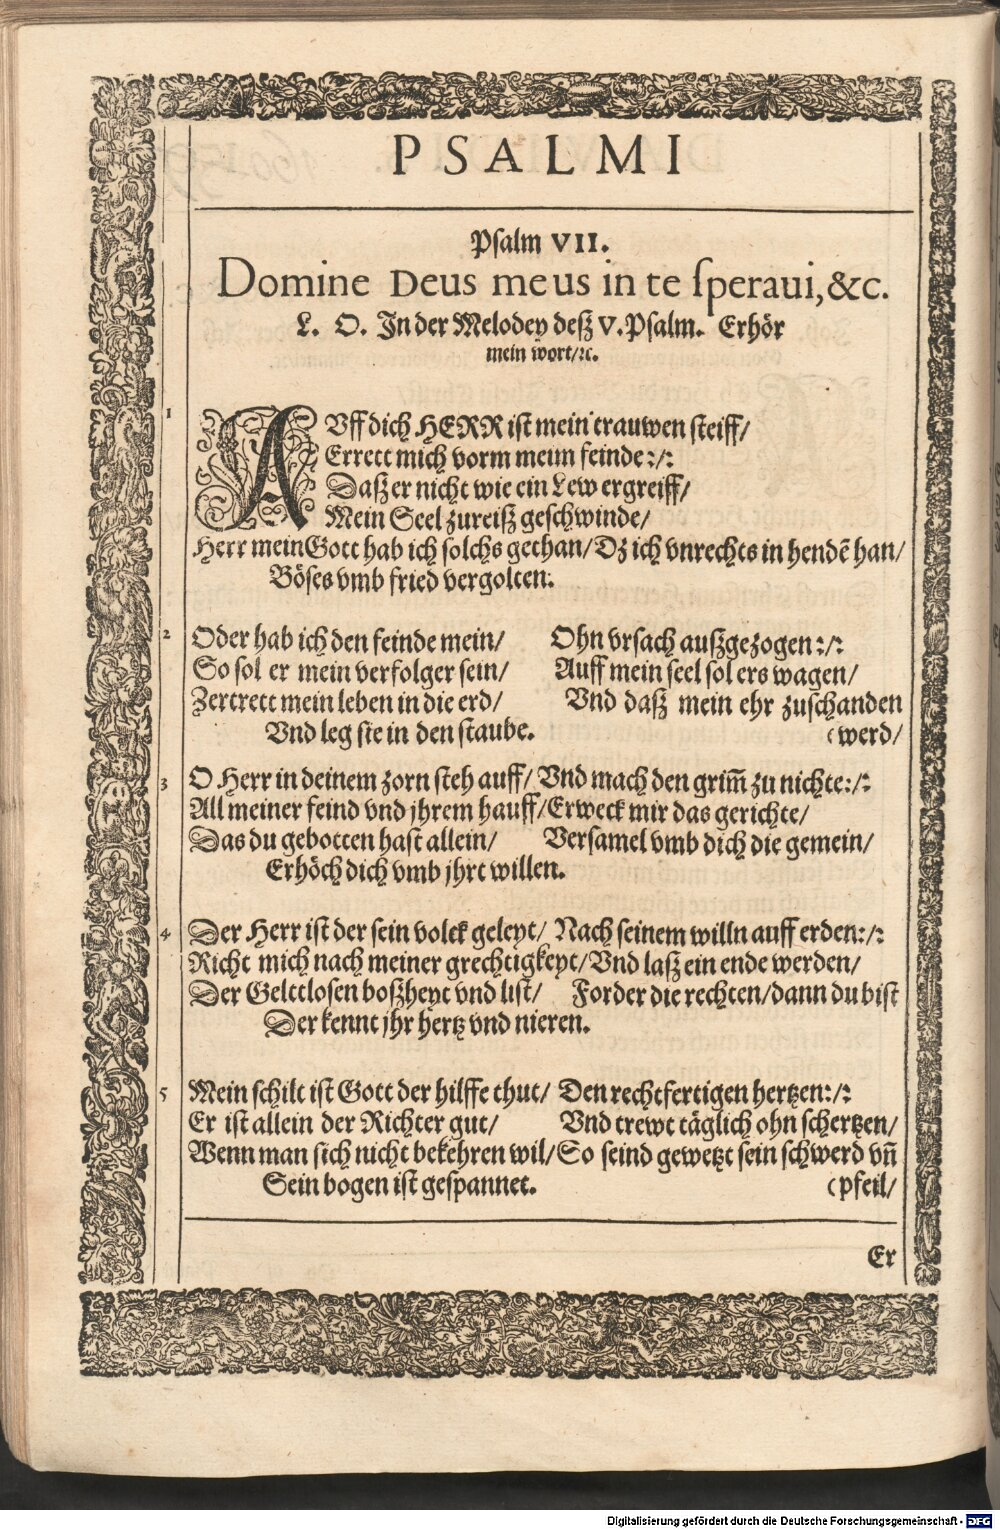 PSALMI
Psalm VII.
Domine Deus meus in te ſperaui, &c.
L. O. In der Melodey deſz V. Pſalm. Erhör
mein wort/ꝛc.
1 AVff dich HERR iſt mein trauwen ſteiff/
Errett mich vorm meim feinde:/:
Daſz er nicht wie ein Lew ergreiff/
Mein Seel zureiſz geſchwinde/
Herr mein Gott hab ich ſolchs gethan/ Dz ich vnrechts in hendē han/
Böſes vmb fried vergolten:
2 Oder hab ich den feinde mein/ Ohn vrſach auſzgezogen:/:
So ſol er mein verfolger ſein/ Auff mein ſeel ſol ers wagen/
Zertrett mein leben in die erd/ Vnd daſz mein ehr zuſchanden
Vnd leg ſie in den ſtaube. (werd/
3 O Herr in deinem zorn ſteh auff/ Vnd mach den grim̃ zu nichte:/:
All meiner feind vnd jhrem hauff/ Erweck mir das gerichte/
Das du gebotten haſt allein/ Verſamel vmb dich die gemein/
Erhöch dich vmb jhrt willen.
4 Der Herr iſt der ſein volck geleyt/ Nach ſeinem willn auff erden:/:
Richt mich nach meiner grechtigkeyt/ Vnd laſz ein ende werden/
Der Gelttloſen boſzheyt vnd liſt/ Forder die rechten/ dann du biſt
Der kennt jhr hertz vnd nieren.
5 Mein ſchilt iſt Gott der hilffe thut/ Den rechtfertigen hertzen:/:
Er iſt allein der Richter gut/ Vnd trewt täglich ohn ſchertzen/
Wenn man ſich nicht bekehren wil/ So ſeind gewetzt ſein ſchwerd vñ
Sein bogen iſt geſpannet. (pfeil/
Er
Digitalisierung gefördert durch die Deutsche Forschungsgemeinschaft - DFG